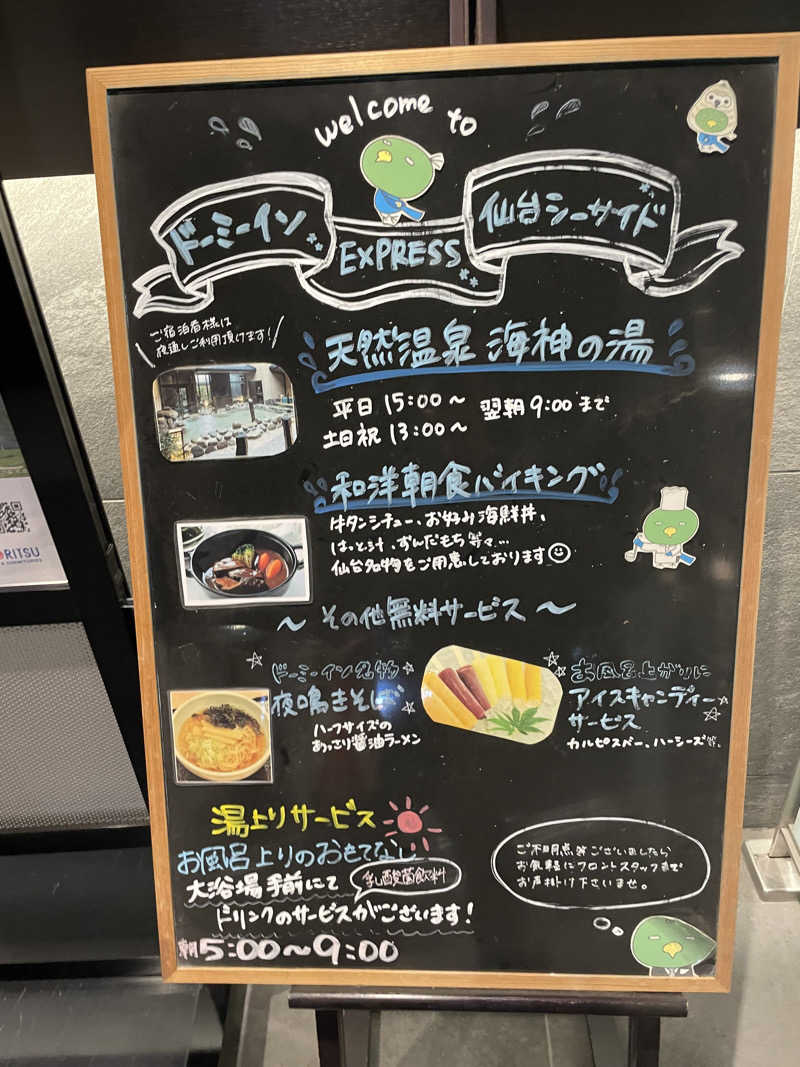 welcome to
ドーミーイン
EXPRESS
仙台シーサイド
ご宿泊者様は
夜通しご利用頂けます!
天然温泉 海神の湯
平日 15:00~ 翌朝 9:00 まで
土日祝 13:00~
和洋朝食バイキング
牛タンシチュー、お好み海鮮丼、
はっと汁、ずんだもち等々…
仙台名物をご用意しております
~ その他無料サービス ~
ドーミーイン名物
夜鳴きそば
ハーフサイズの
あっさり醤油ラーメン
お風呂上がりに
アイスキャンディー
サービス
カルピスバー、ハーシーズ等。
湯上りサービス
お風呂上りのおもてなし
大浴場手前にて
乳酸菌飲料
ドリンクのサービスがございます!
朝5:00~9:00
ご不明点等ございましたら
お気軽にフロントスタッフまで
お声掛け下さいませ。
RITSU